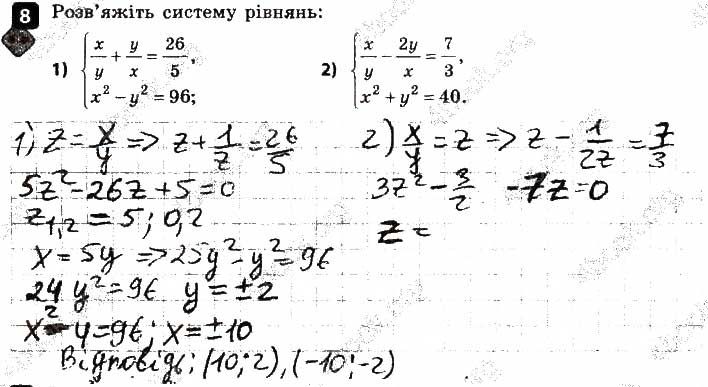 8 Розв'яжіть систему рівнянь:
1) { x/y + y/x = 26/5, x² − y² = 96;
2) { x/y − 2y/x = 7/3, x² + y² = 40.
1) z = x/y => z + 1/z = 26/5
5z² − 26z + 5 = 0
z₁,₂ = 5; 0,2
x = 5y => 25y² − y² = 96
24 y² = 96 y = ±2
x² − 4 = 96; x = ±10
Відповідь: (10; 2), (−10; −2)
2) x/y = z => z − 1/2z = 7/3
3z² − 3/2 − 7z = 0
z =